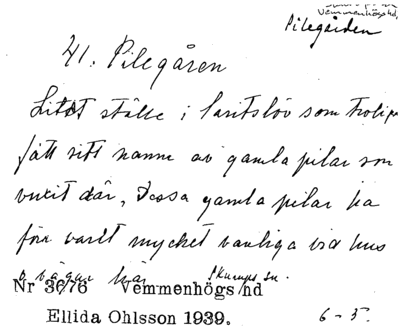 Vemmenhögs hd,
Pilegården
41. Pilegåren
Litet ställe i Saritslöv som troligen
fått sitt namn av gamla pilar som
vuxit där, Dessa gamla pilar ha
förr varit mycket vanliga vid hus
o. vägar här Skurups sn.
Nr 3676 Vemmenhögs hd
Ellida Ohlsson 1939.
6-5.